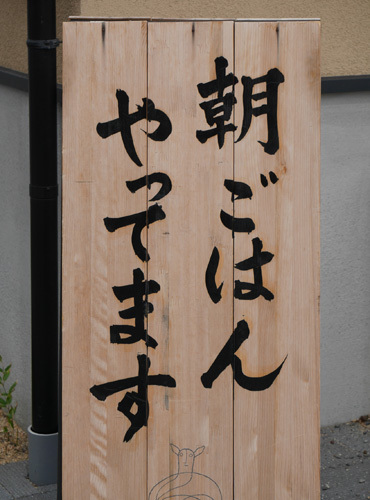 朝ごはん
やってます